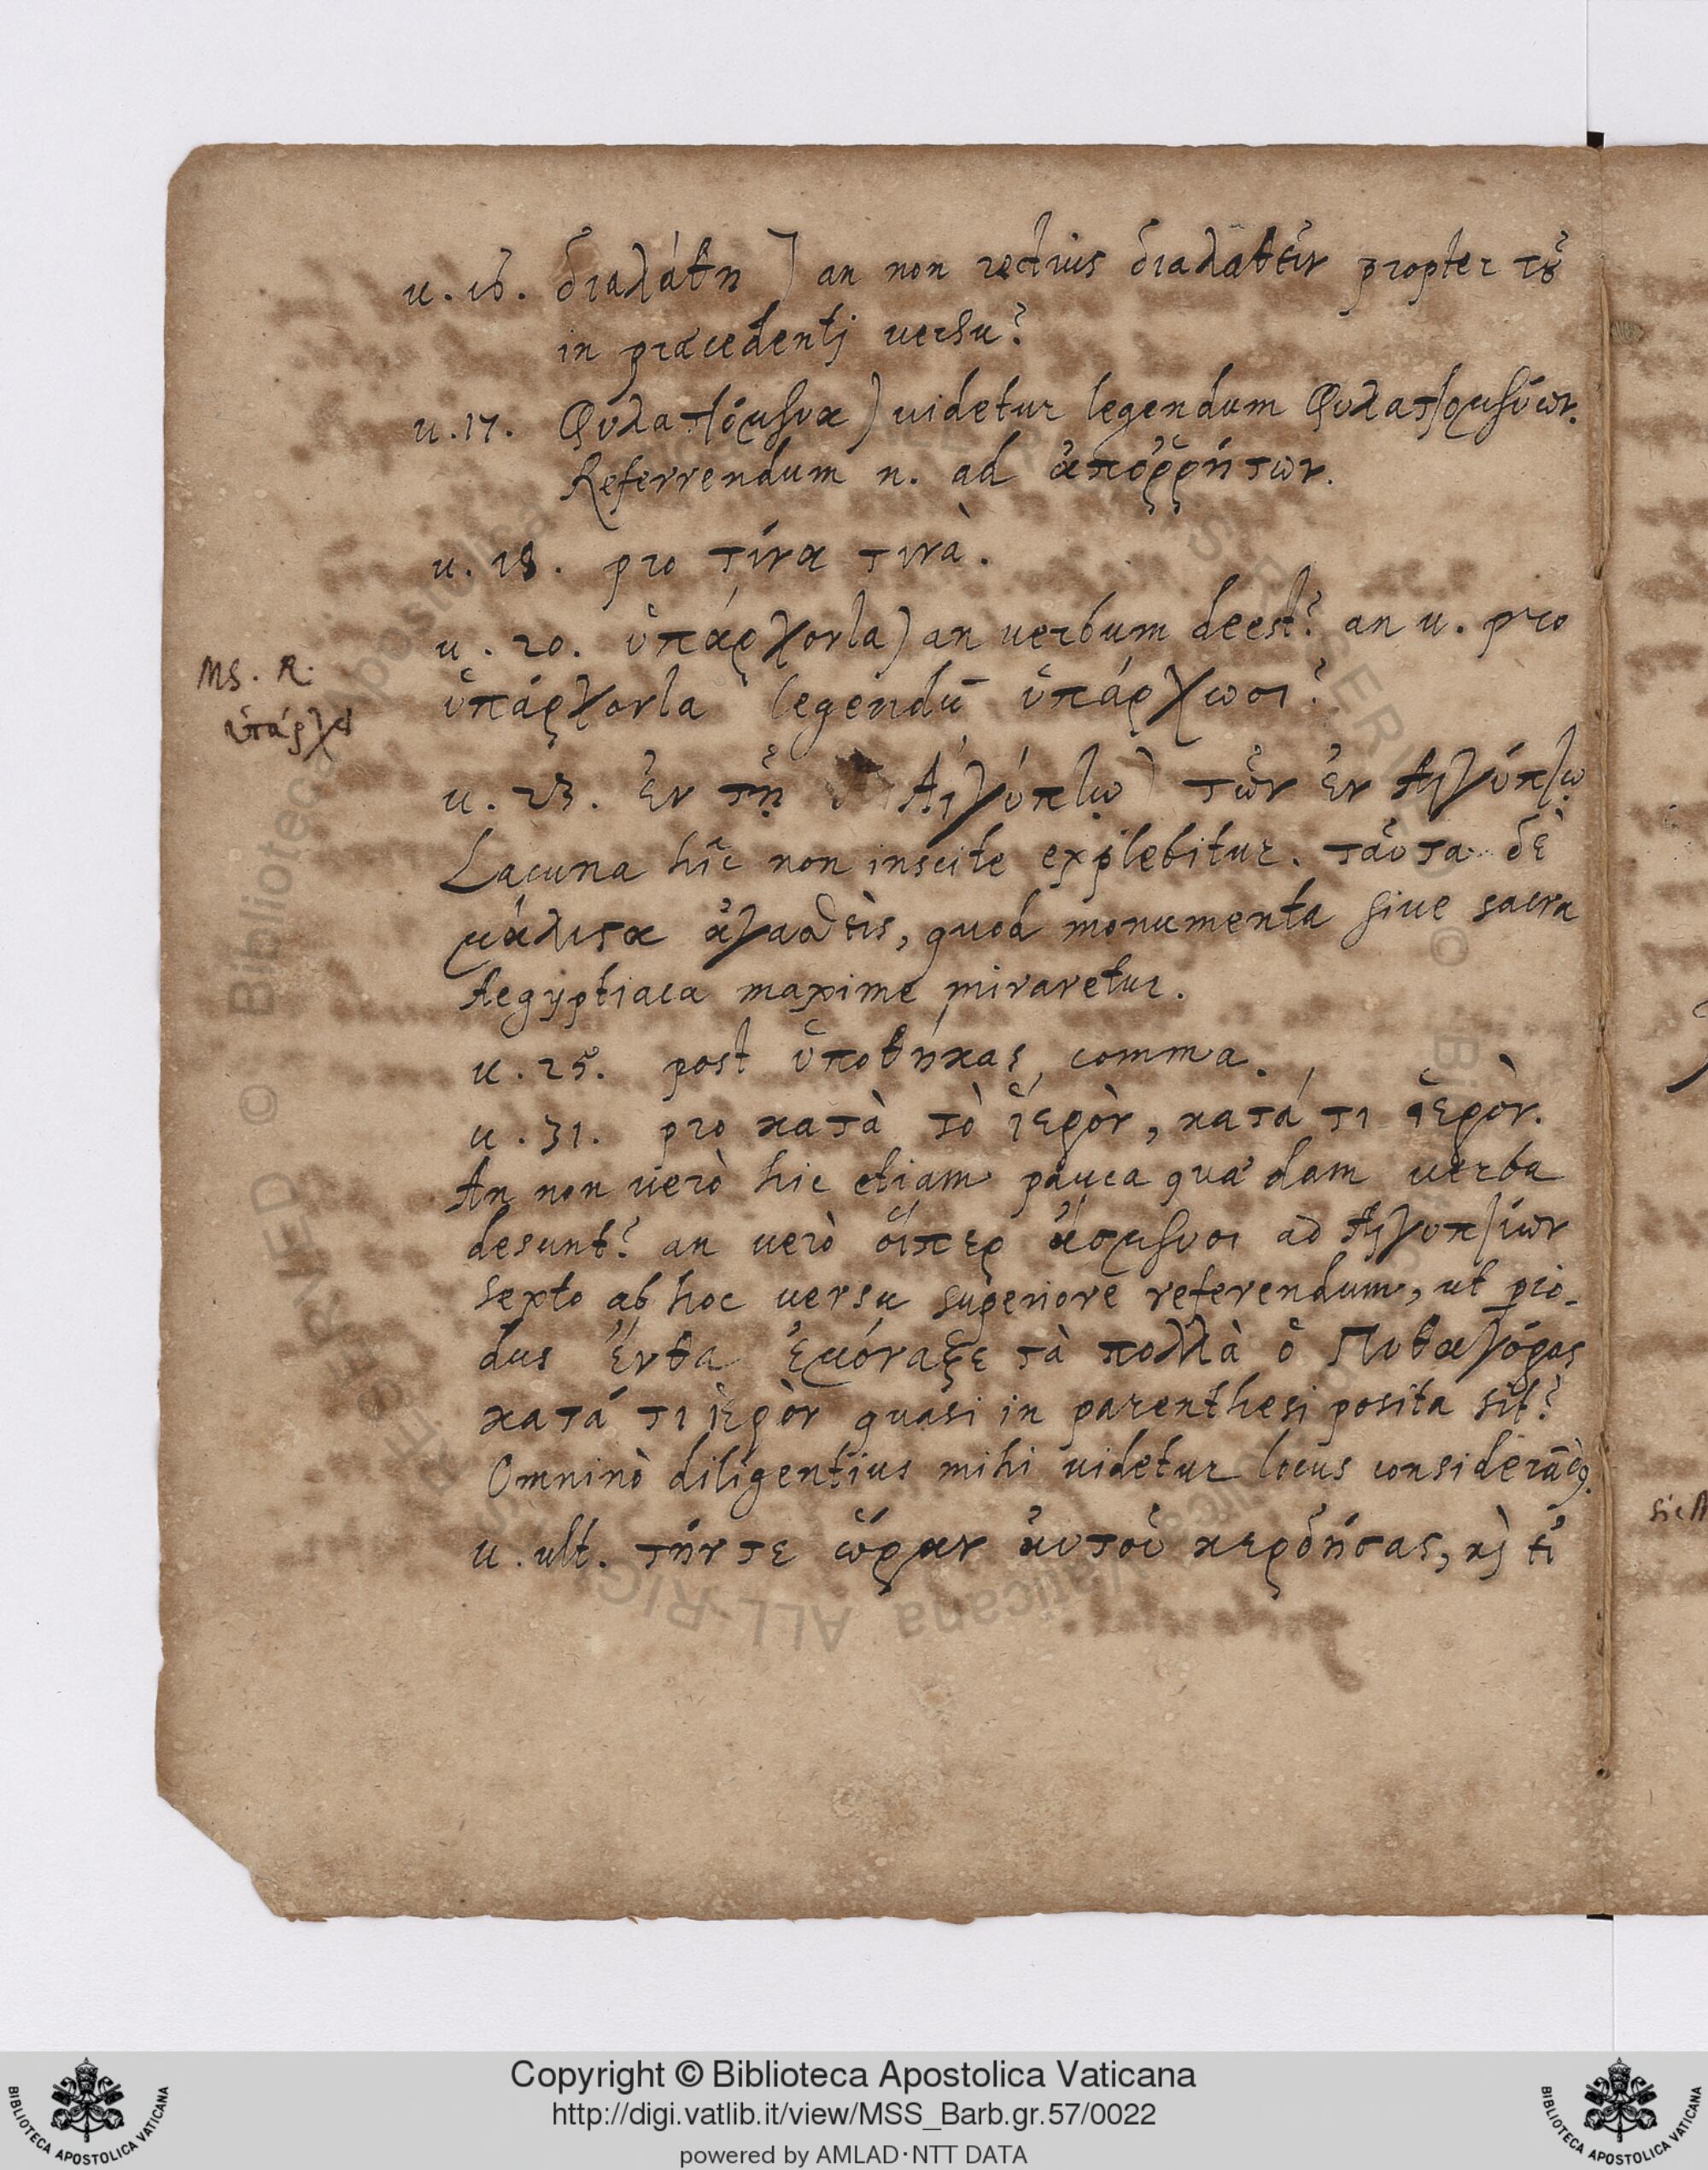 u. 16. διαλάθη ] an non rectius διαλαθεῖν propter τοῦ
in praecedentj uersu?
u. 17. Φυλαττόμενα ) uidetur legendum Φυλαττομένων.
Referrendum n. ad ἀποῤῥήτων.
u. 18. pro τίνα τινὰ.
u. 20. ὑπάρχοντα ) an uerbum deest? an u. pro
ὑπάρχοντα legendū ὑπάρχωσι?
MS. R.
ὑπάρχει
u. 23. ἐν τῇ Αἰγύπτῳ ) τῶν ἐν Αἰγύπτῳ
Lacuna hîc non inscite explebitur. ταῦτα δὲ
μάλιστα ἀγασθεὶς, quod monumenta siue sacra
Aegyptiaca maxime miraretur.
u. 25. post ὑποθήκας comma.
u. 31. pro κατὰ τὸ ἱερὸν, κατά τι ἱερὸν.
An non uerò hic etiam pauca quædam uerba
desunt? an uerò οἵπερ ἄσμενοι ad Αἰγυπτίων
sexto ab hoc uersu superiore referendum, ut pio-
dus ἔνθα ἐμόναζε τὰ πολλὰ ὁ Πυθαγόρας
κατά τι ἱερὸν quasi in parenthesi posita sit?
Omninò diligentius mihi uidetur locus
u. ult. τήν τε ὥραν ἀυτοῦ κερδήσας, κὶ εἰ
Copyright © Biblioteca Apostolica Vaticana
http://digi.vatlib.it/view/MSS_Barb.gr.57/0022
powered by AMLAD·NTT DATA
BIBLIOTECA APOSTOLICA VATICANA
BIBLIOTECA APOSTOLICA VATICANA